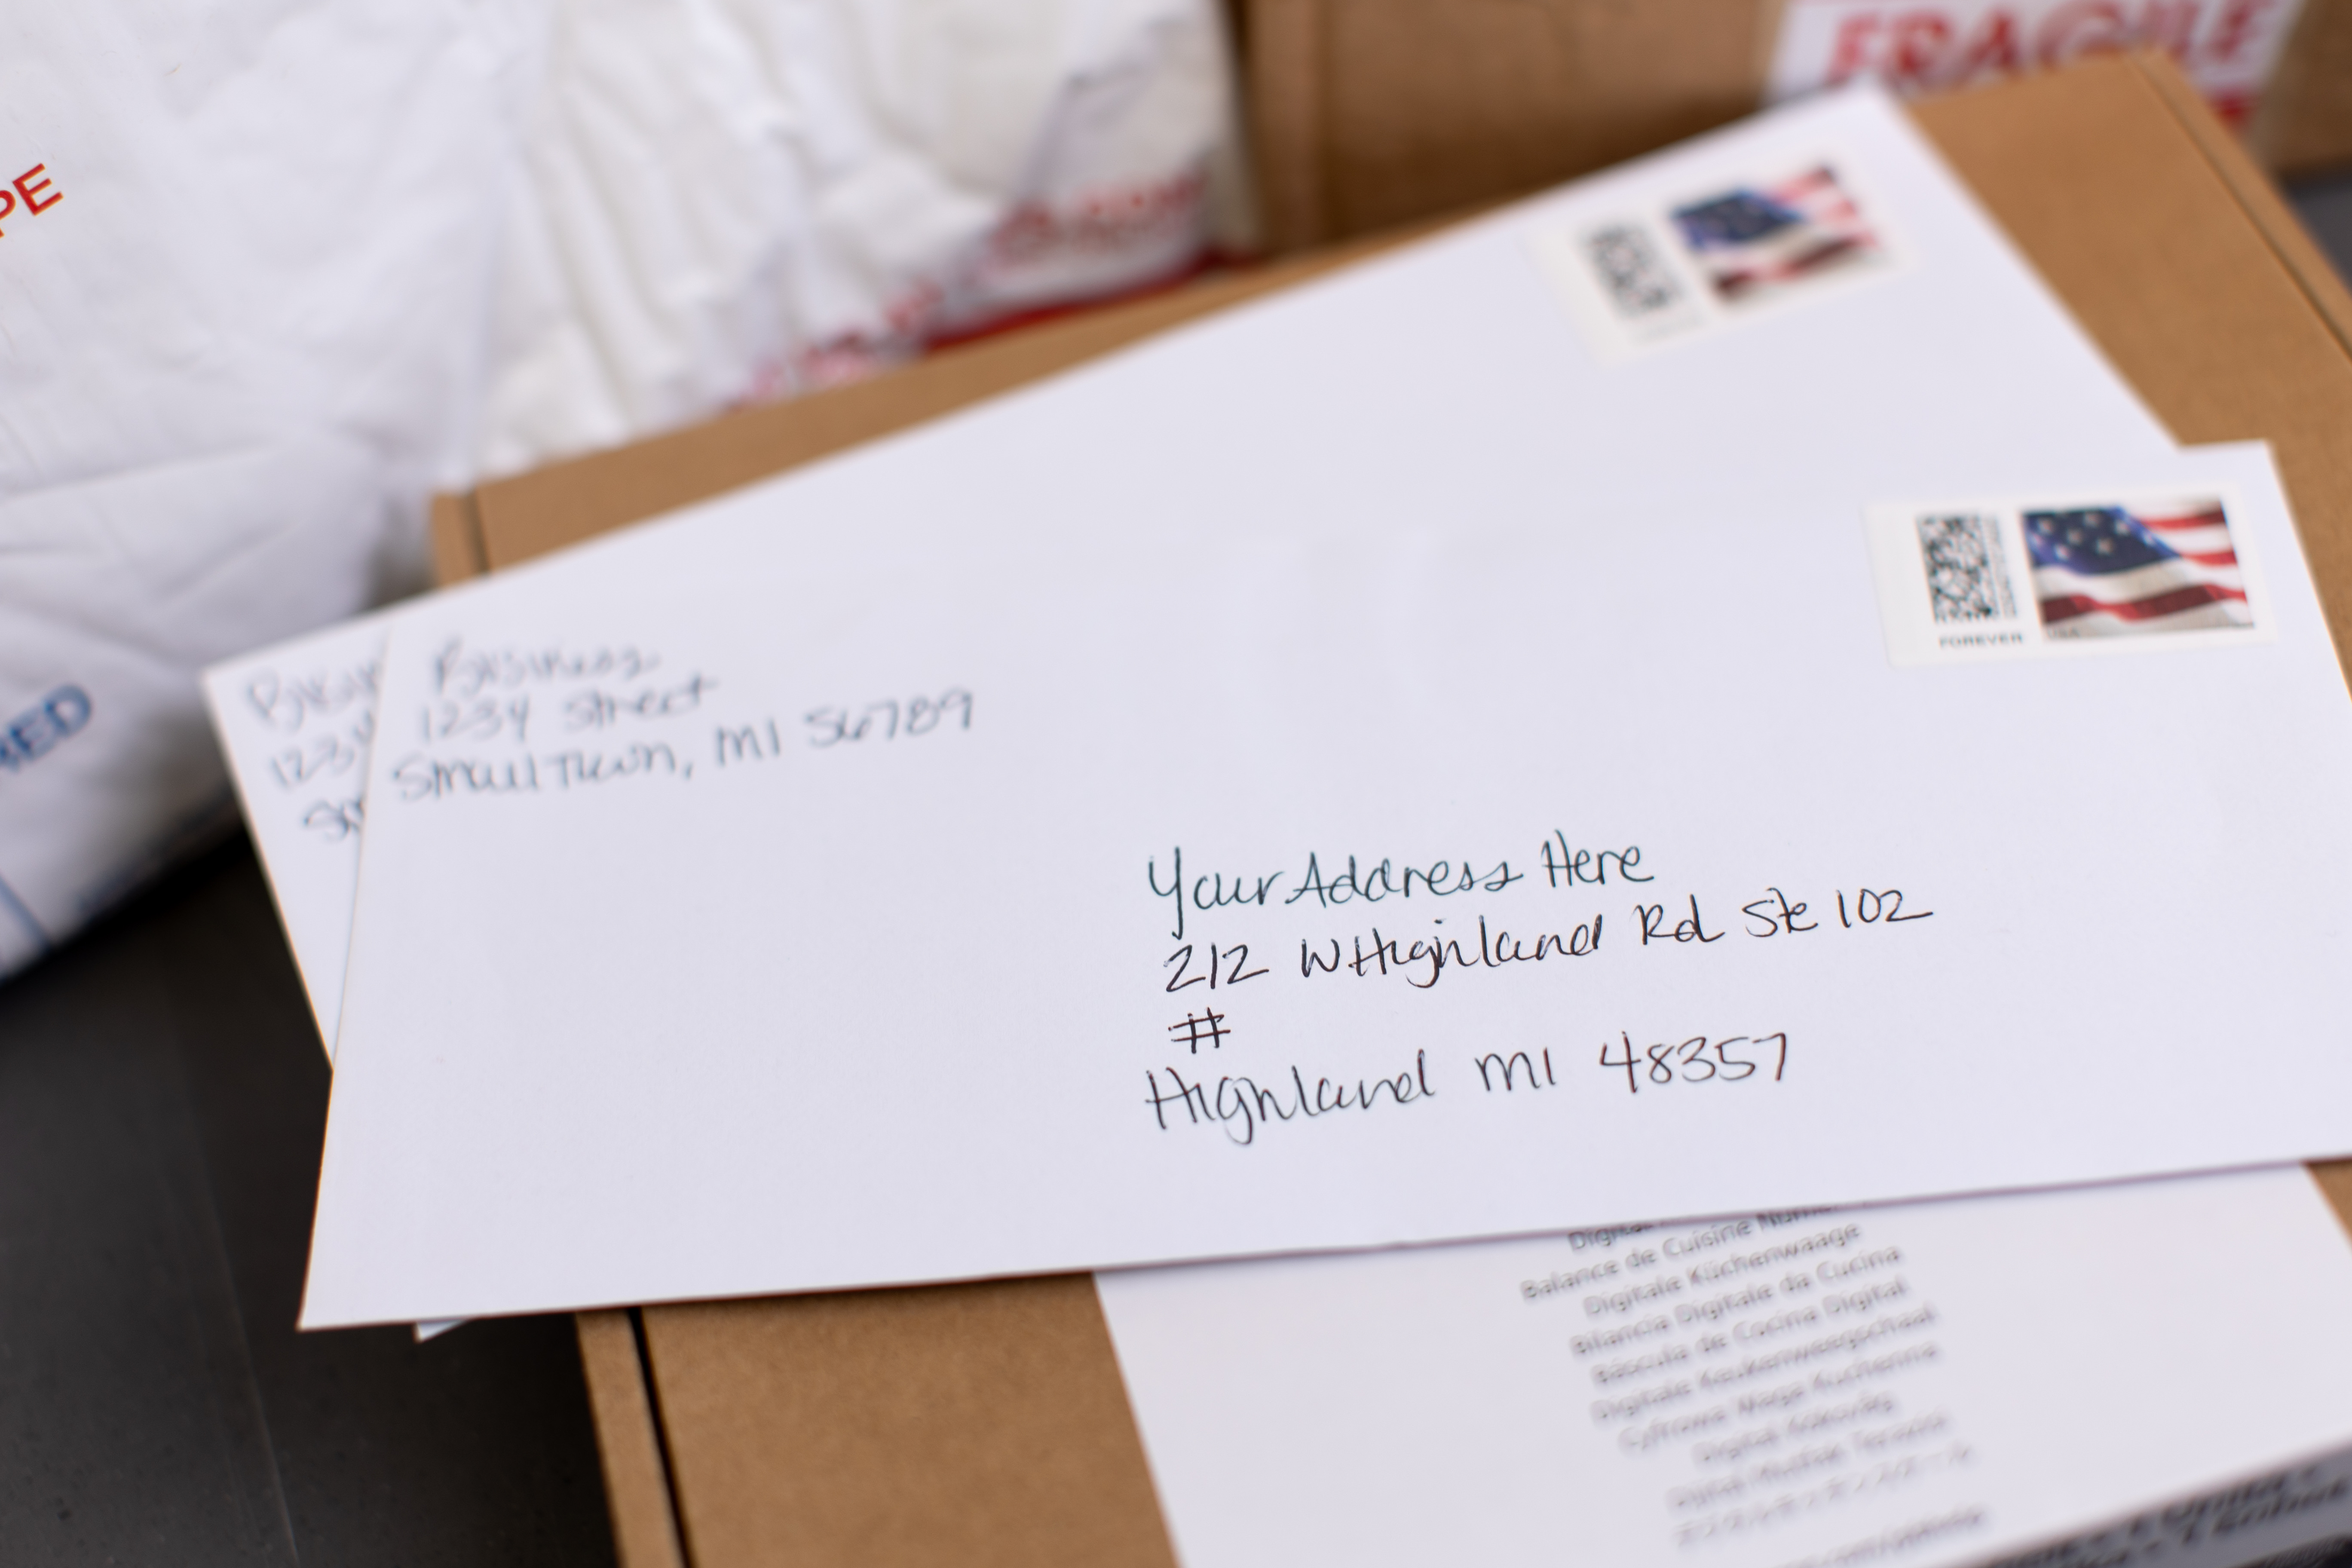 FRAGILE
PE
RED
FOREVER
USA
Busin
1234
Sm
Business
1234 Street
Smalltown, MI 56789
Your Address Here
212 W Highland Rd Ste 102
#
Highland MI 48357
Digital
Balance de Cuisine Num
Digitale Küchenwaage
Bilancia Digitale da Cucina
Báscula de Cocina Digital
Digitale Keukenweegschaal
Cyfrowa Waga Kuchenna
Digital